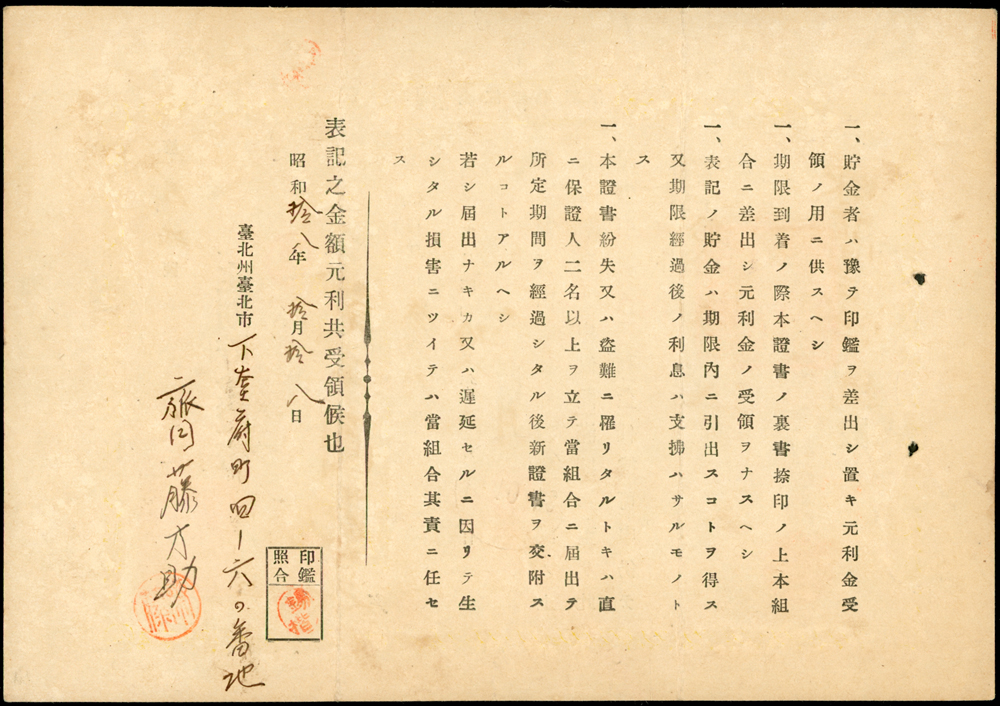 一、貯金者ハ豫テ印鑑ヲ差出シ置キ元利金受
領ノ用ニ供スヘシ
一、期限到着ノ際本證書ノ裏書捺印ノ上本組
合ニ差出シ元利金ノ受領ヲナスヘシ
一、表記ノ貯金ハ期限內ニ引出スコトヲ得ス
又期限經過後ノ利息ハ支拂ハサルモノト
ス
一、本證書紛失又ハ盜難ニ罹リタルトキハ直
ニ保證人二名以上ヲ立テ當組合ニ屆出テ
所定期間ヲ經過シタル後新證書ヲ交附ス
ルコトアルヘシ
若シ屆出ナキカ又ハ遲延セルニ因リテ生
シタル損害ニツイテハ當組合其責ニ任セ
ス
表記之金額元利共受領候也
昭和拾八年 拾月拾八日
臺北州臺北市下奎府町四ノ六の番地
藤才助
印鑑
照合